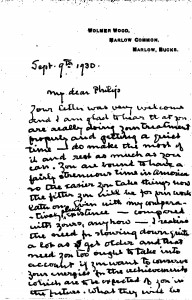 WOLMER WOOD,
MARLOW COMMON,
MARLOW, BUCKS.
Sept. 9th 1930.
My dear Philip
Your letter was very welcome
and I am glad to hear that you
are really doing your treatment
properly and getting a quiet
time — do make the most of
it and rest as much as you
can. You are bound to have a
fairly strenuous time in America
so the easier you take things now
the fitter you will be for your work
later on. Even with my compara-
-tively existence — compared
with yours, anyhow — I realise
the need for slowing down quite
a lot as I get older and that
need you too ought to take into
account if you want to conserve
your energies for the achievements
which are to be expected of you in
the future. What they will be